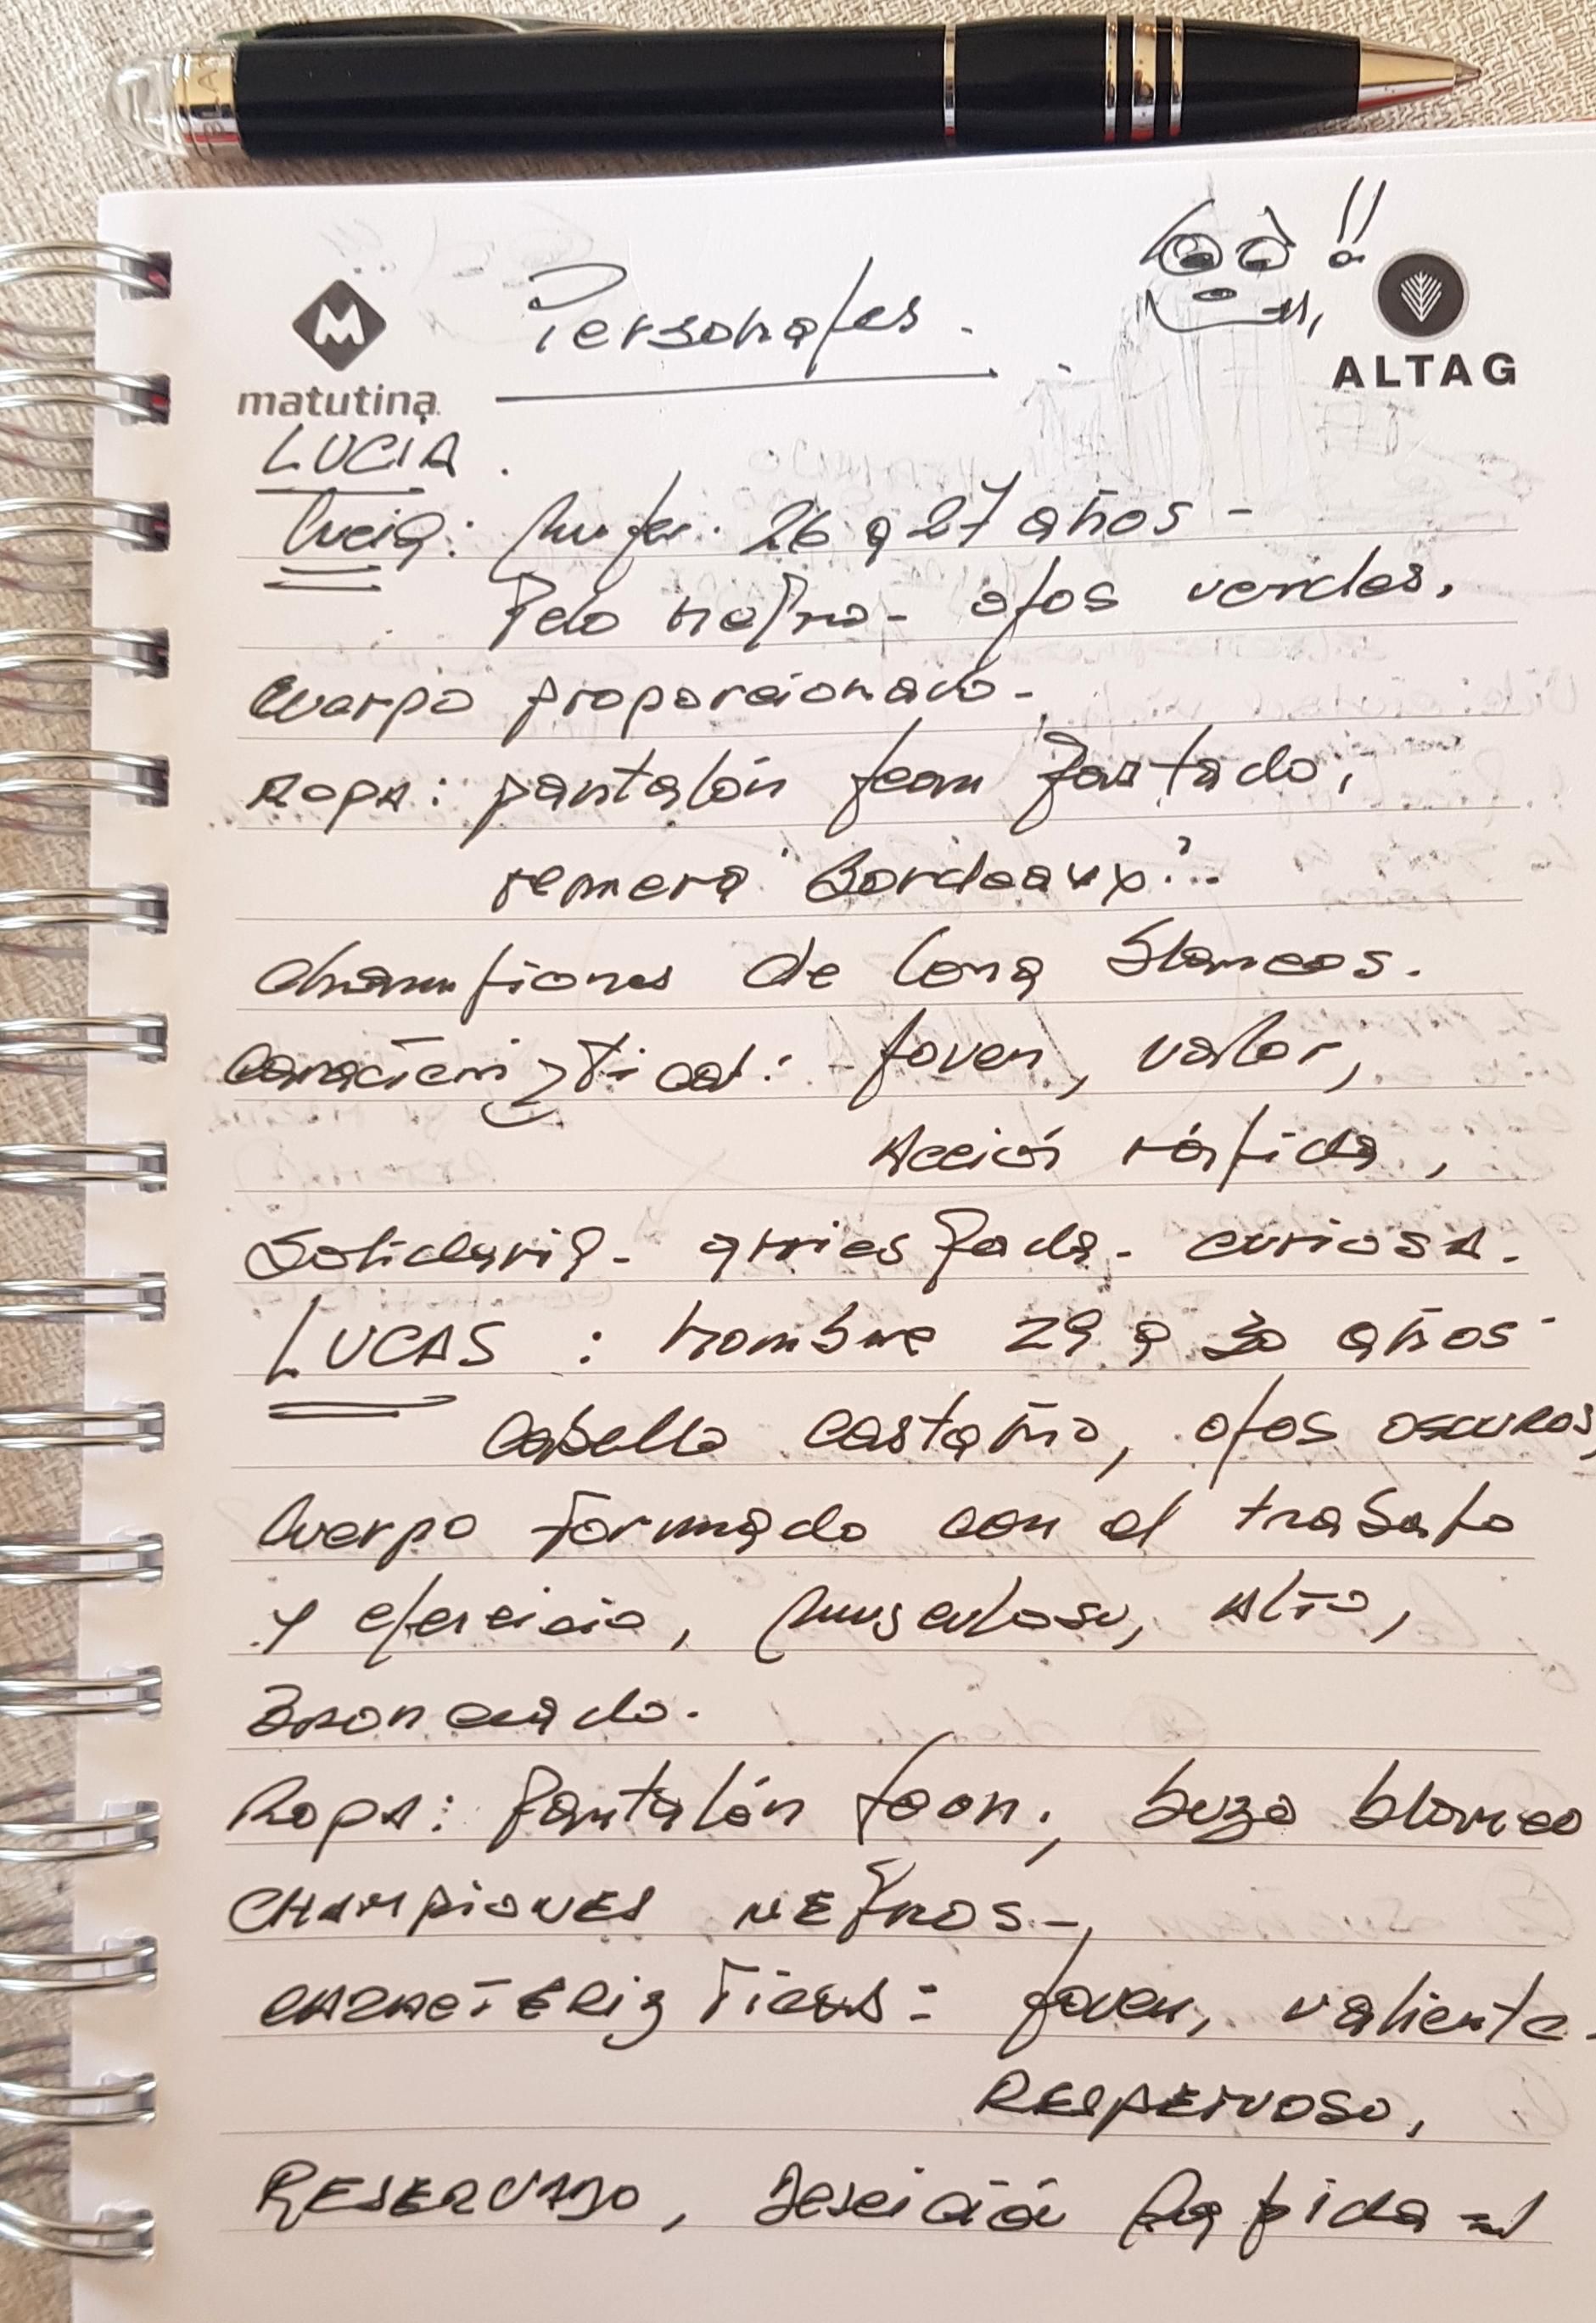 Personajes.
!!
matutina
ALTAG
LUCIA.
Lucia: Mujer. 26 a 27 años -
Pelo negro - ojos verdes.
Cuerpo proporcionado -
Ropa: pantalón jean gastado,
remera "Bordeaux".
Championes de lona blancos.
Caracterizticas: - joven, valor,
Acción rápida,
Solidaria - arriesgada - curiosa.
LUCAS: hombre 29 a 30 años -
Cabello castaño, ojos oscuros,
Cuerpo formado con el trabajo
y ejercicio, musculoso, alto,
Bronceado.
Ropa: Pantalón jean, buzo blanco
CHAMPIONES NEGROS -
CARACTERIZTICAS: joven, valiente.
RESPETUOSO,
RESERVADO, Deseición Rapida